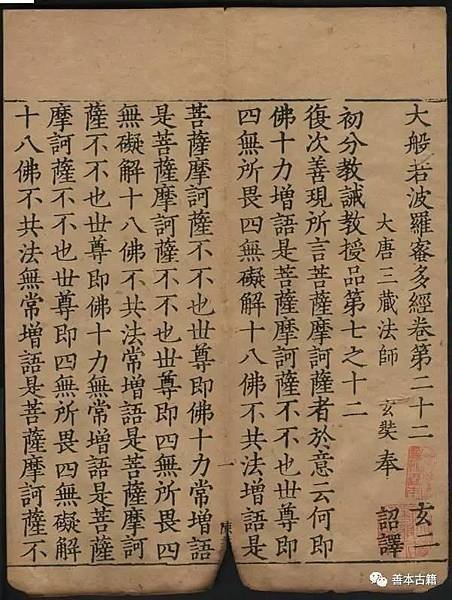 大般若波羅蜜多經卷第二十二 玄二
大唐三藏法師 玄奘奉 詔譯
初分教誡教授品第七之十二
復次善現所言菩薩摩訶薩者於意云何即
佛十力增語是菩薩摩訶薩不不也世尊即
四無所畏四無礙解十八佛不共法增語是
一 陳
菩薩摩訶薩不不也世尊即佛十力常增語
是菩薩摩訶薩不不也世尊即四無所畏四
無礙解十八佛不共法常增語是菩薩摩訶
薩不不也世尊即佛十力無常增語是菩薩
摩訶薩不不也世尊即四無所畏四無礙解
十八佛不共法無常增語是菩薩摩訶薩不
善本古籍